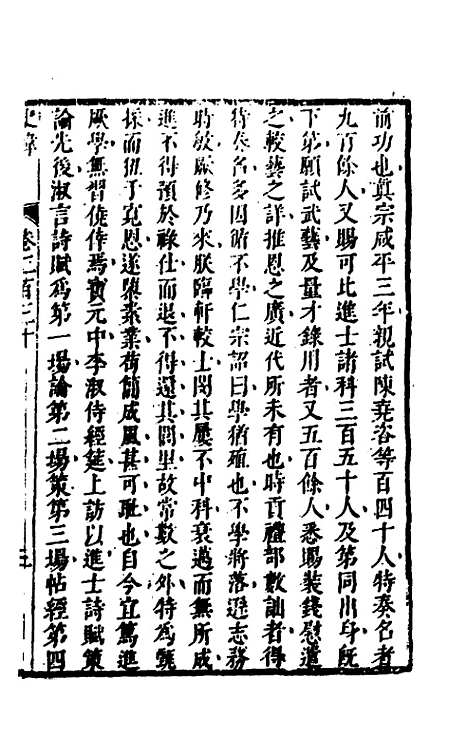 前功也真宗咸平三年親試陳堯咨等百四十人特奏名者
九百餘人又賜可比進士諸科三百五十人及第同出身既
下第願試武藝及量才錄用者又五百餘人悉賜裝錢慰遣
之較藝之詳推恩之廣近代所未有也時貢禮部數詘者得
特奏名多因循不學仁宗詔曰學猶殖也不學將落遜志務
時敏厥修乃來朕臨軒較士閔其屢不中科衰邁而無所成
進不得預於祿仕而退不得還其閭里故常數之外特為甄
採而狃于寬恩遂隳素業苟簡成風甚可恥也自今宜篤進
厥學無習僥倖焉寶元中李淑侍經筵上訪以進士詩賦策
論先後淑言詩賦為第一場論第二場策第三場帖經第四
史緯
卷二百三十
三